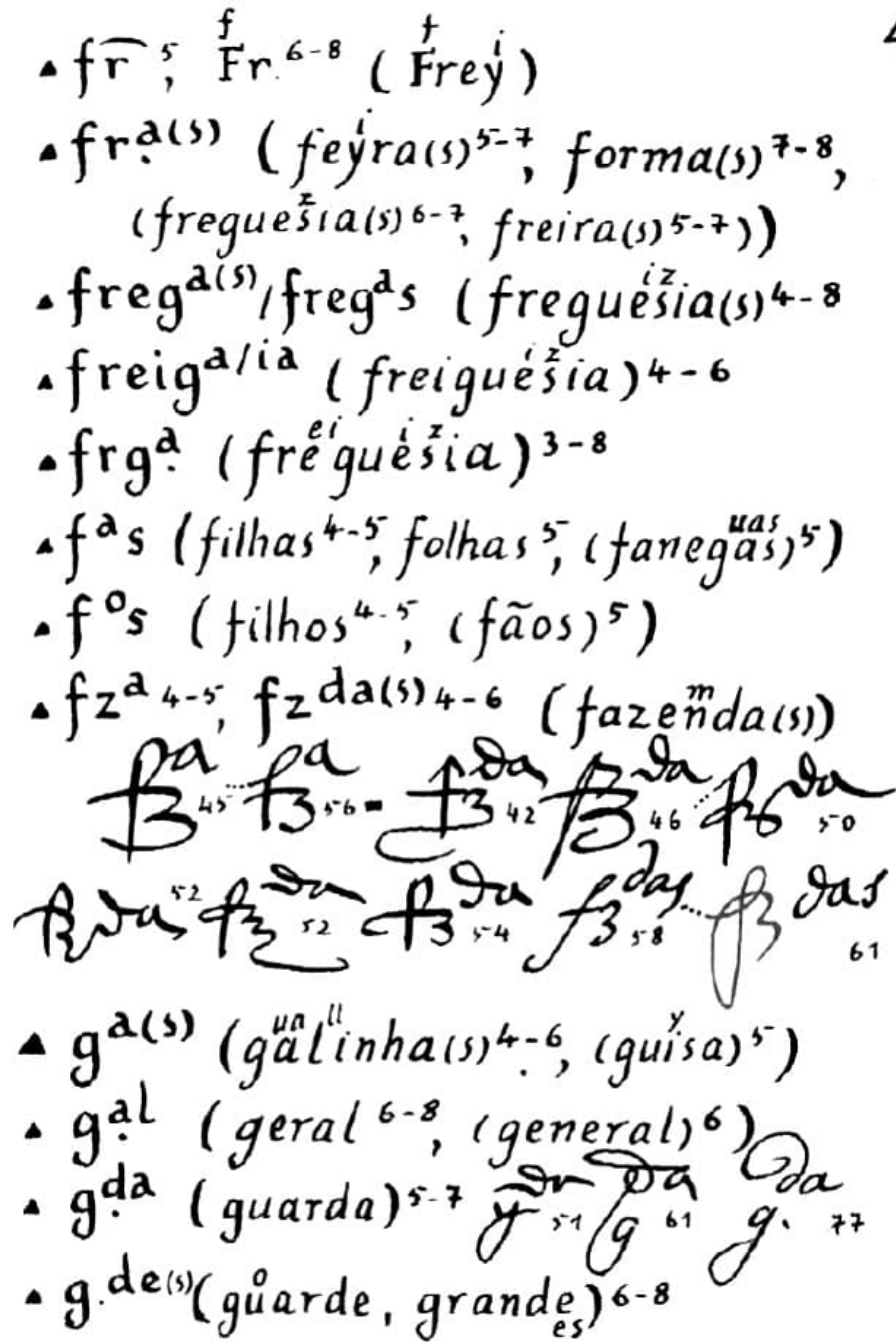 ▲ fr͞ ⁵, F͏r.⁶⁻⁸ (Frey)
▲ fr.ᵃ⁽ˢ⁾ (feyra(s)⁵⁻⁷, forma(s)⁷⁻⁸,
(freguesia(s)⁶⁻⁷, freira(s)⁵⁻⁷))
▲ fregᵃ⁽ˢ⁾/fregᵃs (freguesia(s)⁴⁻⁸
▲ freigᵃ/ⁱᵃ (freiguesia)⁴⁻⁶
▲ frg.ᵃ (freguesia)³⁻⁸
▲ fᵃs (filhas⁴⁻⁵, folhas⁵, (fanegas)⁵)
▲ fᵒs (filhos⁴⁻⁵, (fãos)⁵)
▲ fzᵃ ⁴⁻⁵, fzᵈᵃ⁽ˢ⁾ ⁴⁻⁶ (fazenda(s))
fzᵃ 45 ... fzᵃ 56 = fzᵈᵃ 42 fzᵈᵃ 46 ... fzᵈᵃ 50
fzda 52 fzᵈᵃ 52 fzᵈᵃ 54 fzᵈᵃˢ 58 ... fzᵈᵃˢ 61
▲ gᵃ⁽ˢ⁾ (galinha(s)⁴⁻⁶, (guisa)⁵)
▲ g.ᵃˡ (geral⁶⁻⁸, (general)⁶)
▲ g.ᵈᵃ (guarda)⁵⁻⁷ gᵈᵃ 51 gᵈᵃ 61 g.ᵈᵃ 77
▲ g.ᵈᵉ⁽ˢ⁾ (guarde, grande es)⁶⁻⁸